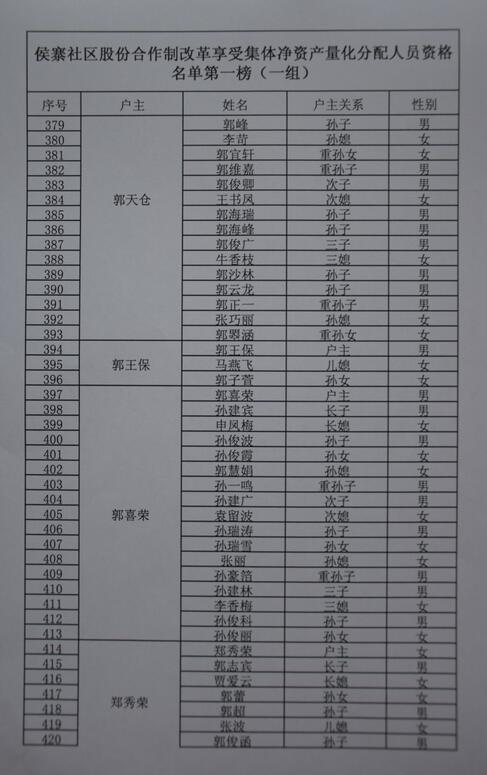 侯寨社区股份合作制改革享受集体净资产量化分配人员资格
名单第一榜（一组）
序号 户主 姓名 户主关系 性别
379 郭峰 孙子 男
380 李苛 孙媳 女
381 郭宜轩 重孙女 女
382 郭维嘉 重孙子 男
383 郭俊卿 次子 男
384 郭天仓 王书凤 次媳 女
385 郭海瑞 孙子 男
386 郭海峰 孙子 男
387 郭俊广 三子 男
388 牛香枝 三媳 女
389 郭沙林 孙子 男
390 郭云龙 孙子 男
391 郭正一 重孙子 男
392 张巧丽 孙媳 女
393 郭曌涵 重孙女 女
394 郭王保 户主 男
395 郭王保 马燕飞 儿媳 女
396 郭子萱 孙女 女
397 郭喜荣 户主 男
398 孙建宾 长子 男
399 申凤梅 长媳 女
400 孙俊波 孙子 男
401 孙俊霞 孙女 女
402 郭慧娟 孙媳 女
403 孙一鸣 重孙子 男
404 孙建广 次子 男
405 郭喜荣 袁留波 次媳 女
406 孙瑞涛 孙子 男
407 孙瑞雪 孙女 女
408 张丽 孙媳 女
409 孙豪箔 重孙子 男
410 孙建林 三子 男
411 李香梅 三媳 女
412 孙俊科 孙子 男
413 孙俊丽 孙女 女
414 郑秀荣 户主 女
415 郭志宾 长子 男
416 贾爱云 长媳 女
417 郑秀荣 郭蕾 孙女 女
418 郭超 孙子 男
419 张波 儿媳 女
420 郭俊函 孙子 男